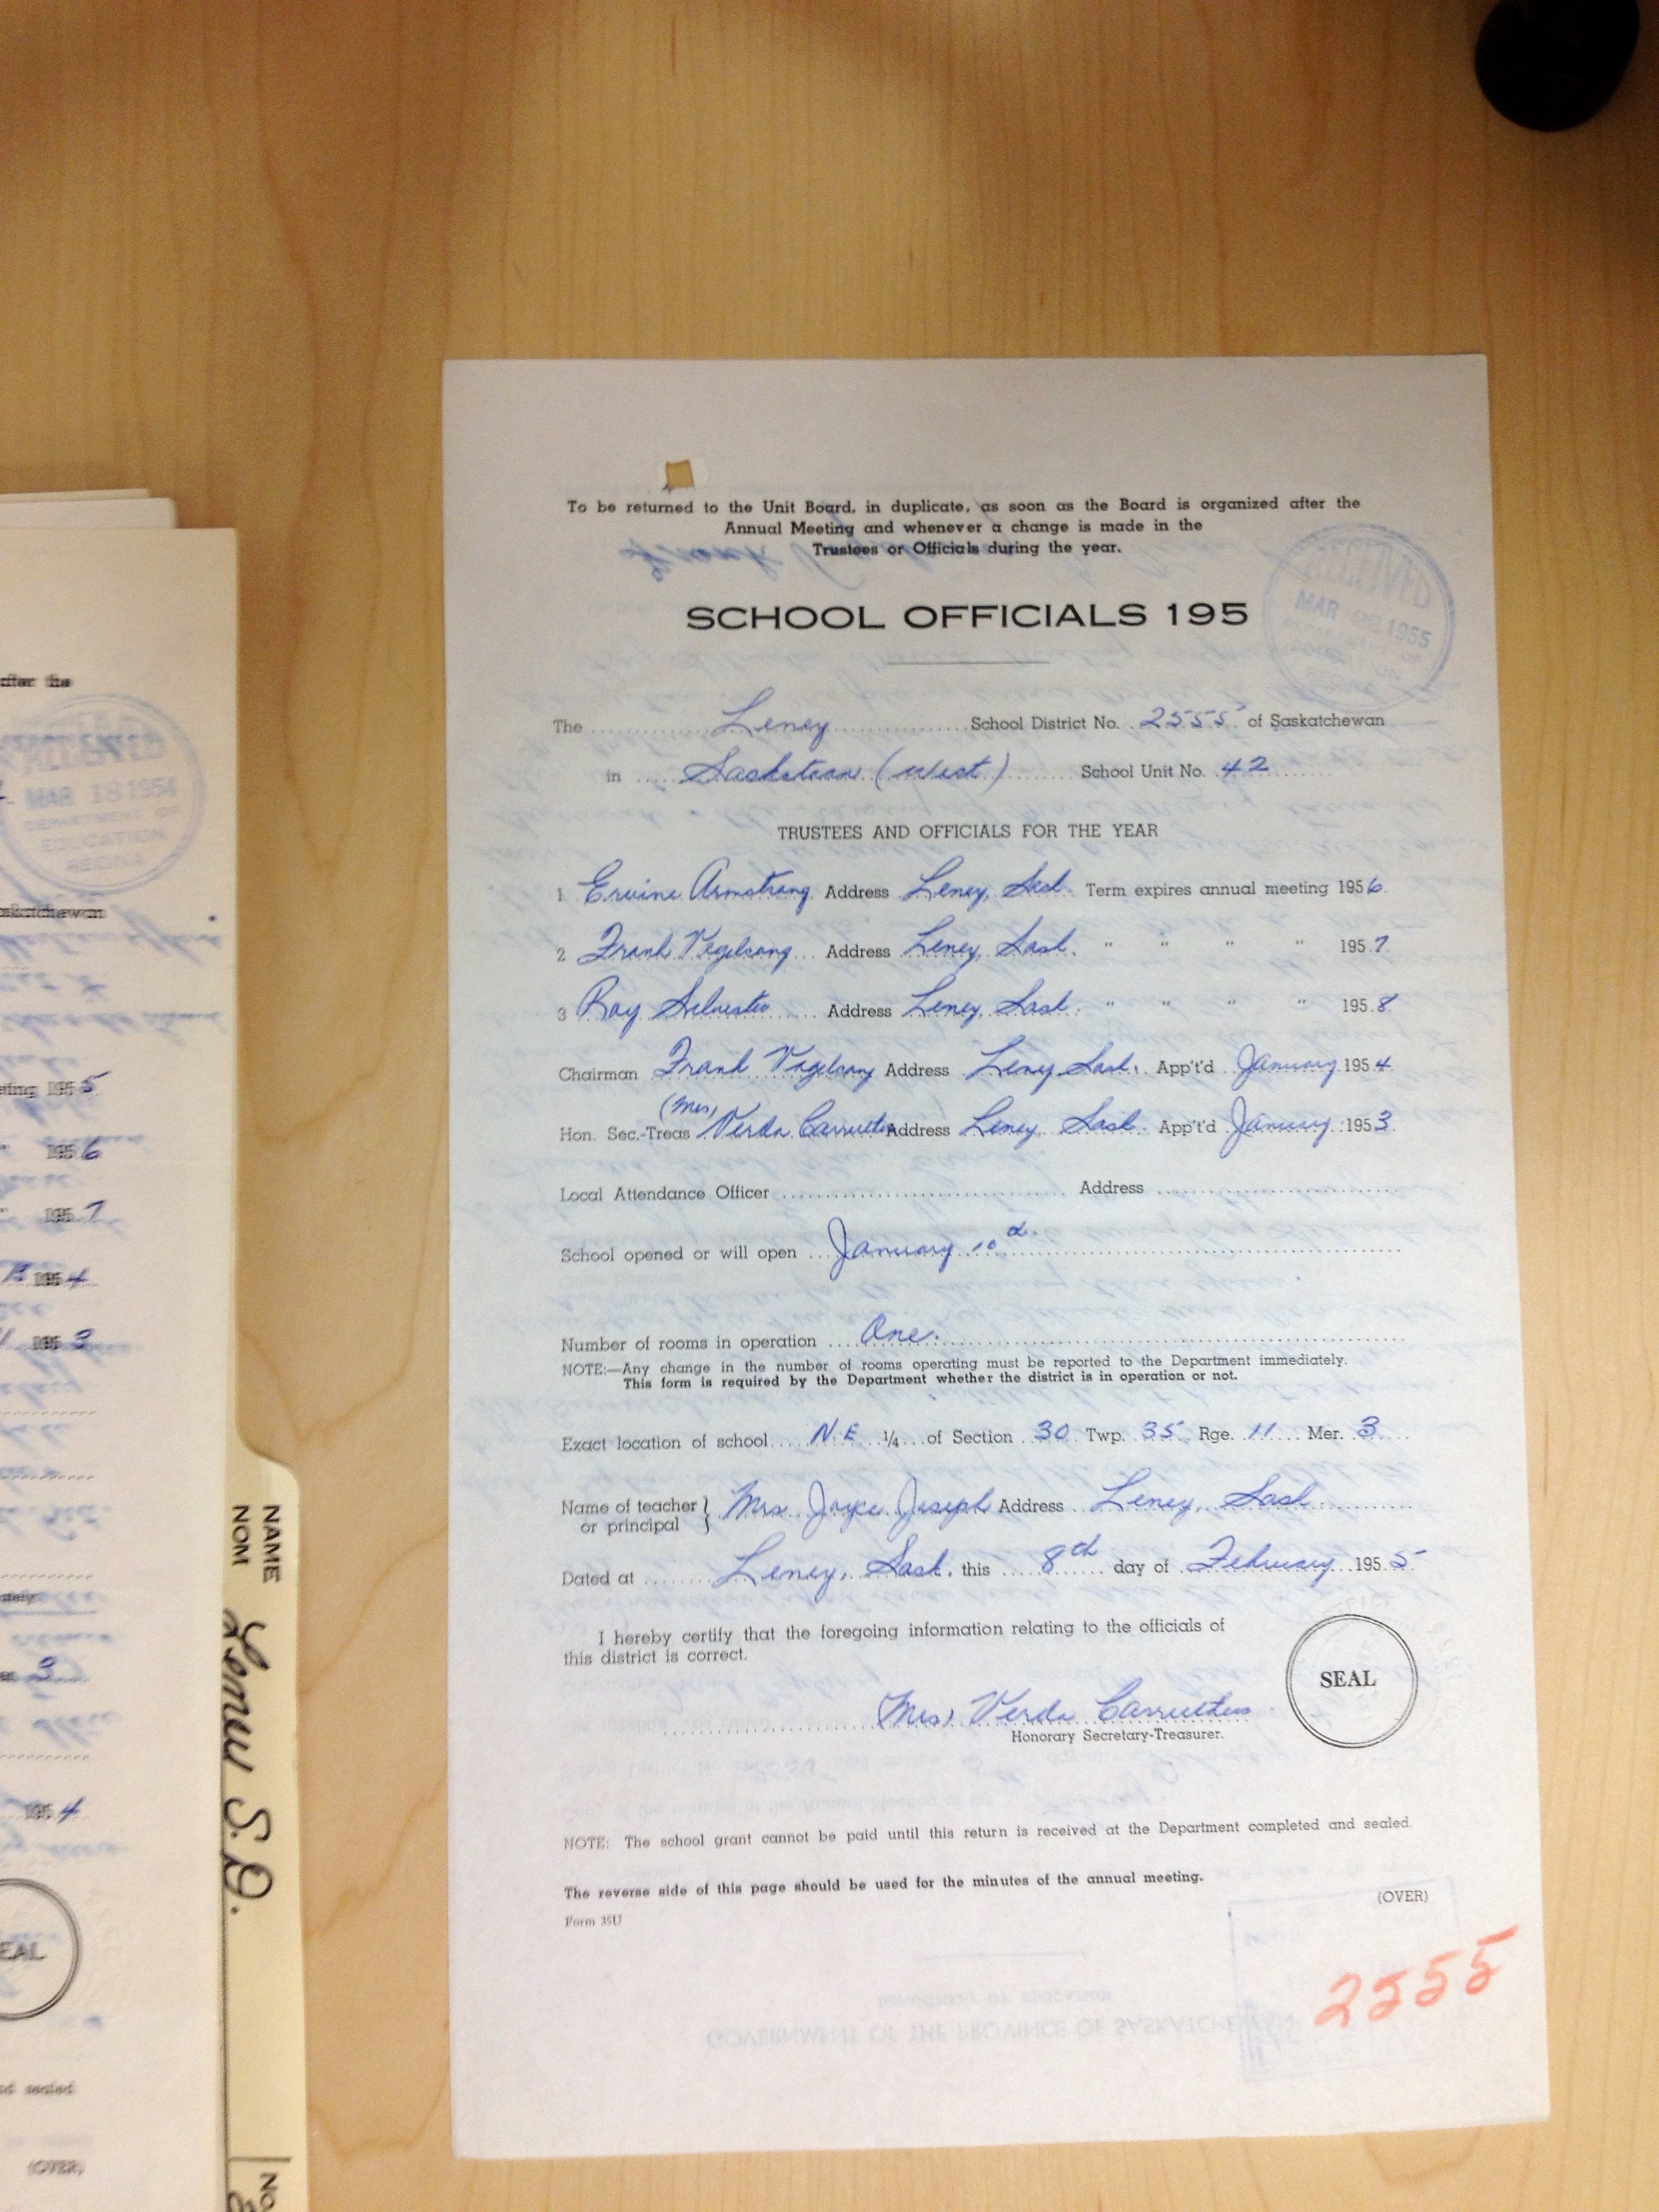 To be returned to the Unit Board, in duplicate, as soon as the Board is organized after the
Annual Meeting and whenever a change is made in the
Trustees or Officials during the year.
RECEIVED
MAR 1955
SCHOOL OFFICIALS 195
The Leney School District No. 2555 of Saskatchewan
in Saskatoon (West) School Unit No. 42
TRUSTEES AND OFFICIALS FOR THE YEAR
1 Ervine Armstrong Address Leney, Sask. Term expires annual meeting 1956
2 Frank Vogelsang Address Leney, Sask. " " " " 1957
3 Roy Silvester Address Leney, Sask. " " " " 1958
Chairman Frank Vogelsang Address Leney Sask. App't'd January 1954
(Mrs)
Hon. Sec.-Treas Verda Carruthers Address Leney, Sask. App't'd January 1953
Local Attendance Officer Address
School opened or will open January 10th.
Number of rooms in operation One.
NOTE:—Any change in the number of rooms operating must be reported to the Department immediately.
This form is required by the Department whether the district is in operation or not.
Exact location of school N.E. 1/4 of Section 30 Twp. 35 Rge. 11 Mer. 3
Name of teacher } Mrs. Joyce Joseph Address Leney, Sask.
or principal
Dated at Leney, Sask. this 8th day of February 1955
I hereby certify that the foregoing information relating to the officials of
this district is correct.
SEAL
(Mrs) Verda Carruthers
Honorary Secretary-Treasurer.
NOTE: The school grant cannot be paid until this return is received at the Department completed and sealed.
The reverse side of this page should be used for the minutes of the annual meeting.
(OVER)
Form 35U
2555
after the
RECEIVED
MAR 18 1954
DEPARTMENT OF
EDUCATION
REGINA
1955
1956
1957
1954
1953
3
1954
sealed
(OVER)
NAME
NOM
Leney S.D.
NO.